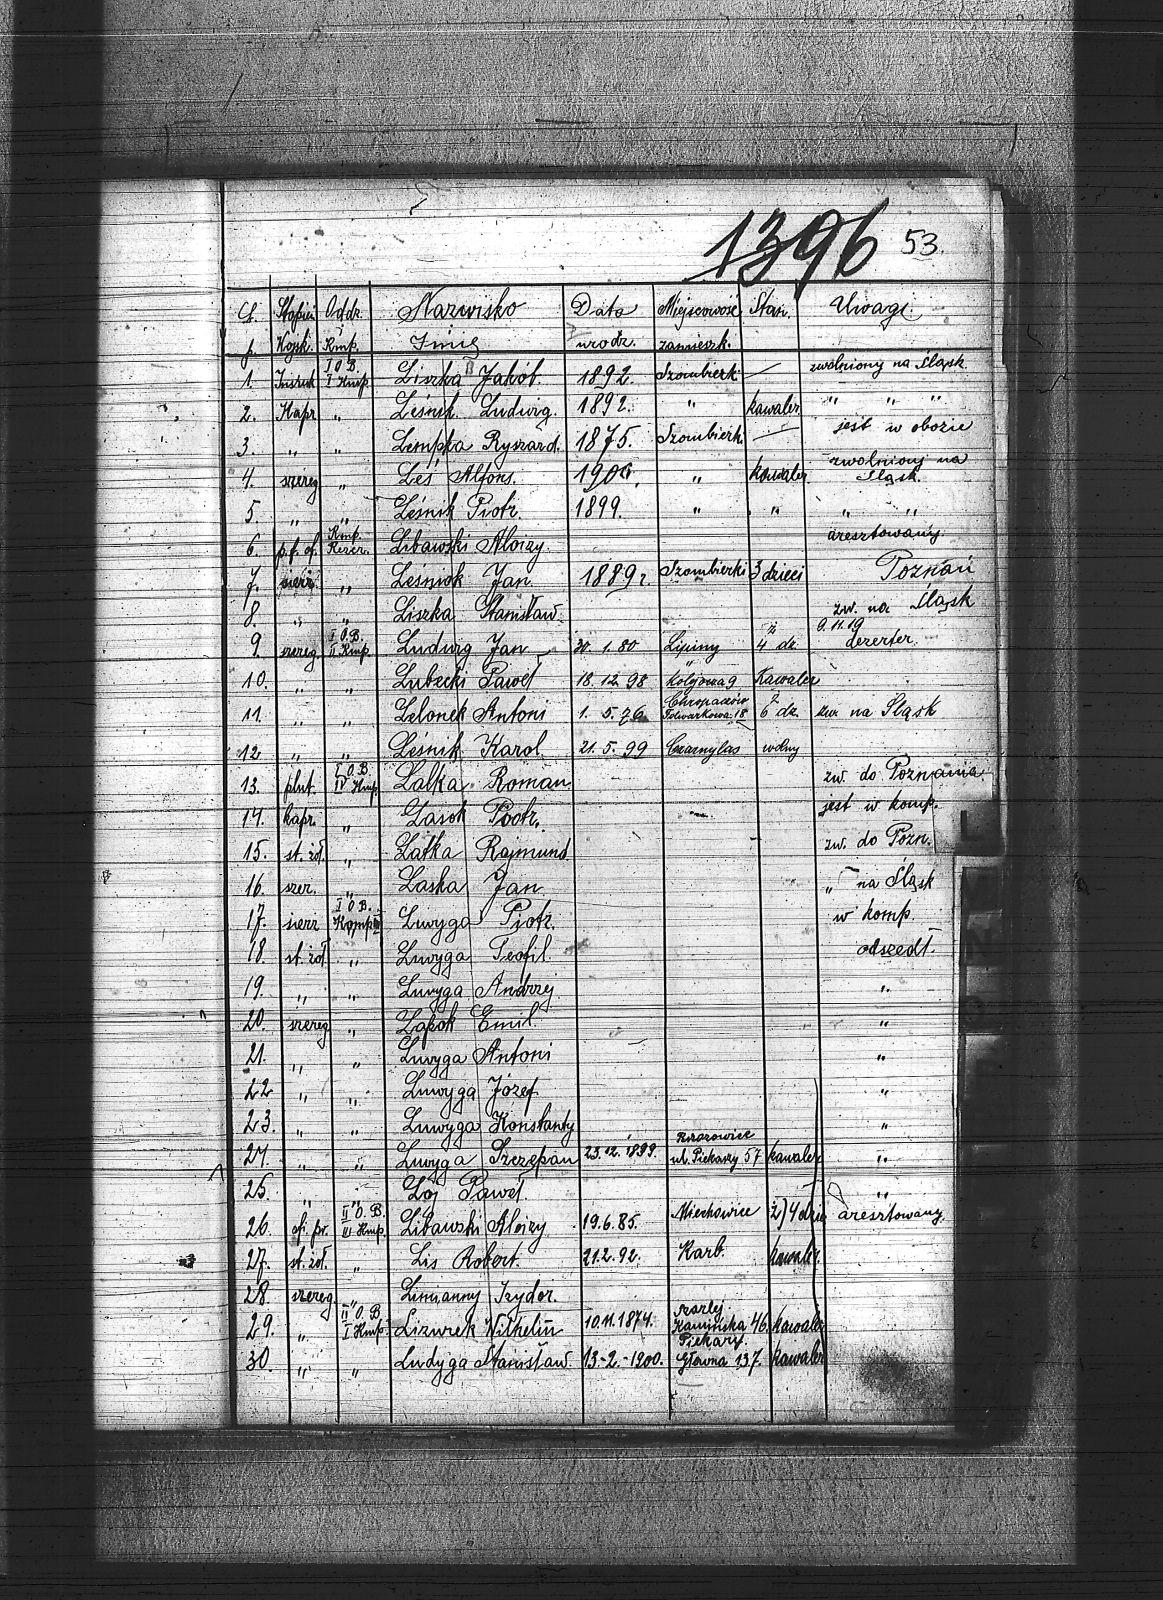 1396 53.
L. Stopień Oddz. Nazwisko Data Miejscowość Stan. Uwagi.
p. Wojsk. Kmp. Imię urodz. zamieszk.
1. Instruk I O.B. I Kmp. Liszka II Jakób. 1892. Szombierk — zwolniony na Śląsk.
2. Kapr. „ Leśnik Ludwig. 1892. „ kawaler „ „ „
3. „ „ Lempka Ryszard. 1875. Szombierk. — jest w obozie
4. szereg „ Leś Alfons. 1900. „ kawaler zwolniony na Śląsk.
5. „ „ Leśnik Piotr. 1899. „ „ „ „
6. p.f. of. Kmp. Rezer. Libawski Aloizy. aresztowany.
7. sierż. „ Leśniok Jan. 1889 r. Szombierki 3 dzieci Poznań
8. „ „ Liszka Stanisław. zw. na Śląsk
9. szereg I O.B. II Kmp. Ludwig Jan 30. 1. 80 Lipiny ż 4 dz. 9.11.19 dezerter.
10. „ „ Lubecki Paweł 18. 12. 98 „ 9 Kawaler
11. „ „ Lelonek Antoni 1. 5. 76 Chropaczów Folwarkowa 18 ż 6 dz. zw. na Śląsk
12 „ „ Leśnik Karol. 21. 5. 99 Czarnylas wolny
13. plut. I O.B. IV Kmp. Lalka Roman zw. do Poznania
14. kapr. „ Lasok Piotr. jest w komp.
15. st. żoł. „ Latka Rajmund zw. do Pozn.
16. szer. „ Laska Jan „ na Śląsk
17. sierż I O.B. Komp. Luwyga Piotr. w komp.
18. st. żoł. „ Luwyga Teofil. odszedł.
19. „ „ Luwyga Andrzej „
20. szereg „ Lapok Emil. „
21. „ „ Luwyga Antoni „
22 „ „ Luwyga Józef „
23. „ „ Luwyga Konstanty „
24. „ „ Luwyga Szczepan 23. 12. 1899 ul. Piekary 57 kawaler „
25. „ „ Loj Paweł „
26. of. pr. II O.B. III Kmp. Libawski Aloizy 19. 6. 85. Miechowice ż) 4 dzie aresztowany.
27. st. żoł. „ Lis Robert. 21. 2. 92. Karb. kawaler.
28. szereg „ Limanny Izydor.
29. „ II O.B. I Kmp. Lizurek Wilhelm 10. 11. 1874. Szarlej. Kamińska 46. kawaler
30. „ „ Ludyga Stanisław. 13.-2.-1900. Piekary Główna 137. kawaler